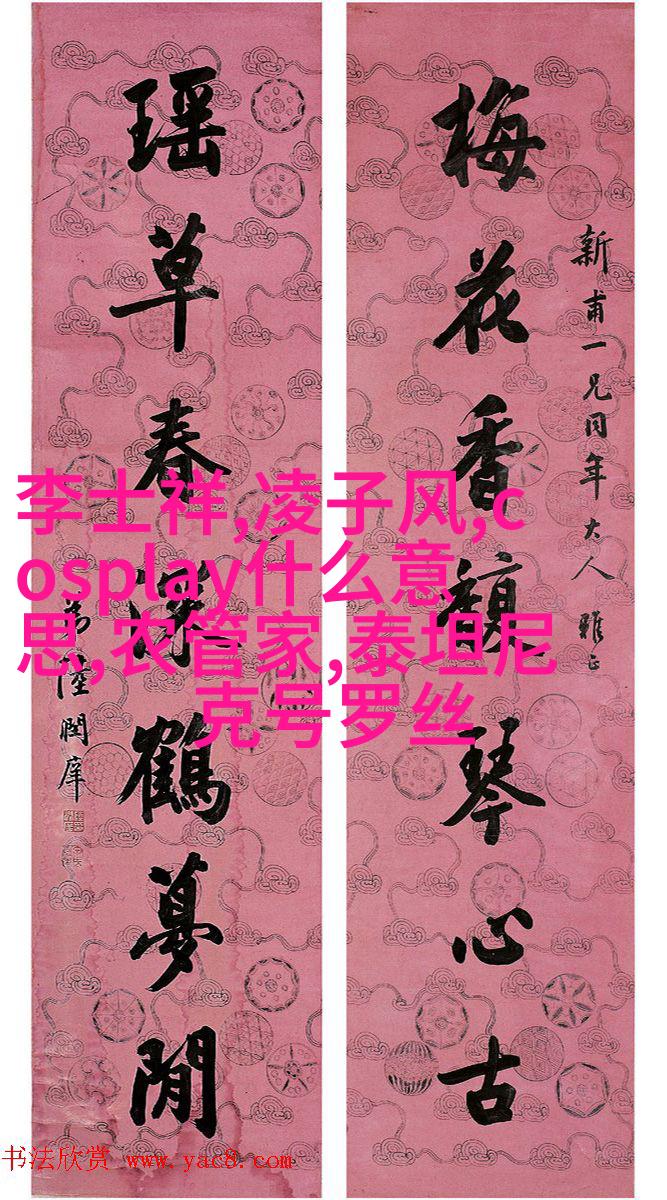 新甫一兄同年大人雅正
梅花香馥琴心古
瑶草春鶴夢閒
弟陸潤庠
李士祥,凌子风,c
osplay什么意
思,农管家,泰坦尼
克号罗丝
书法欣赏 www.yac8.com